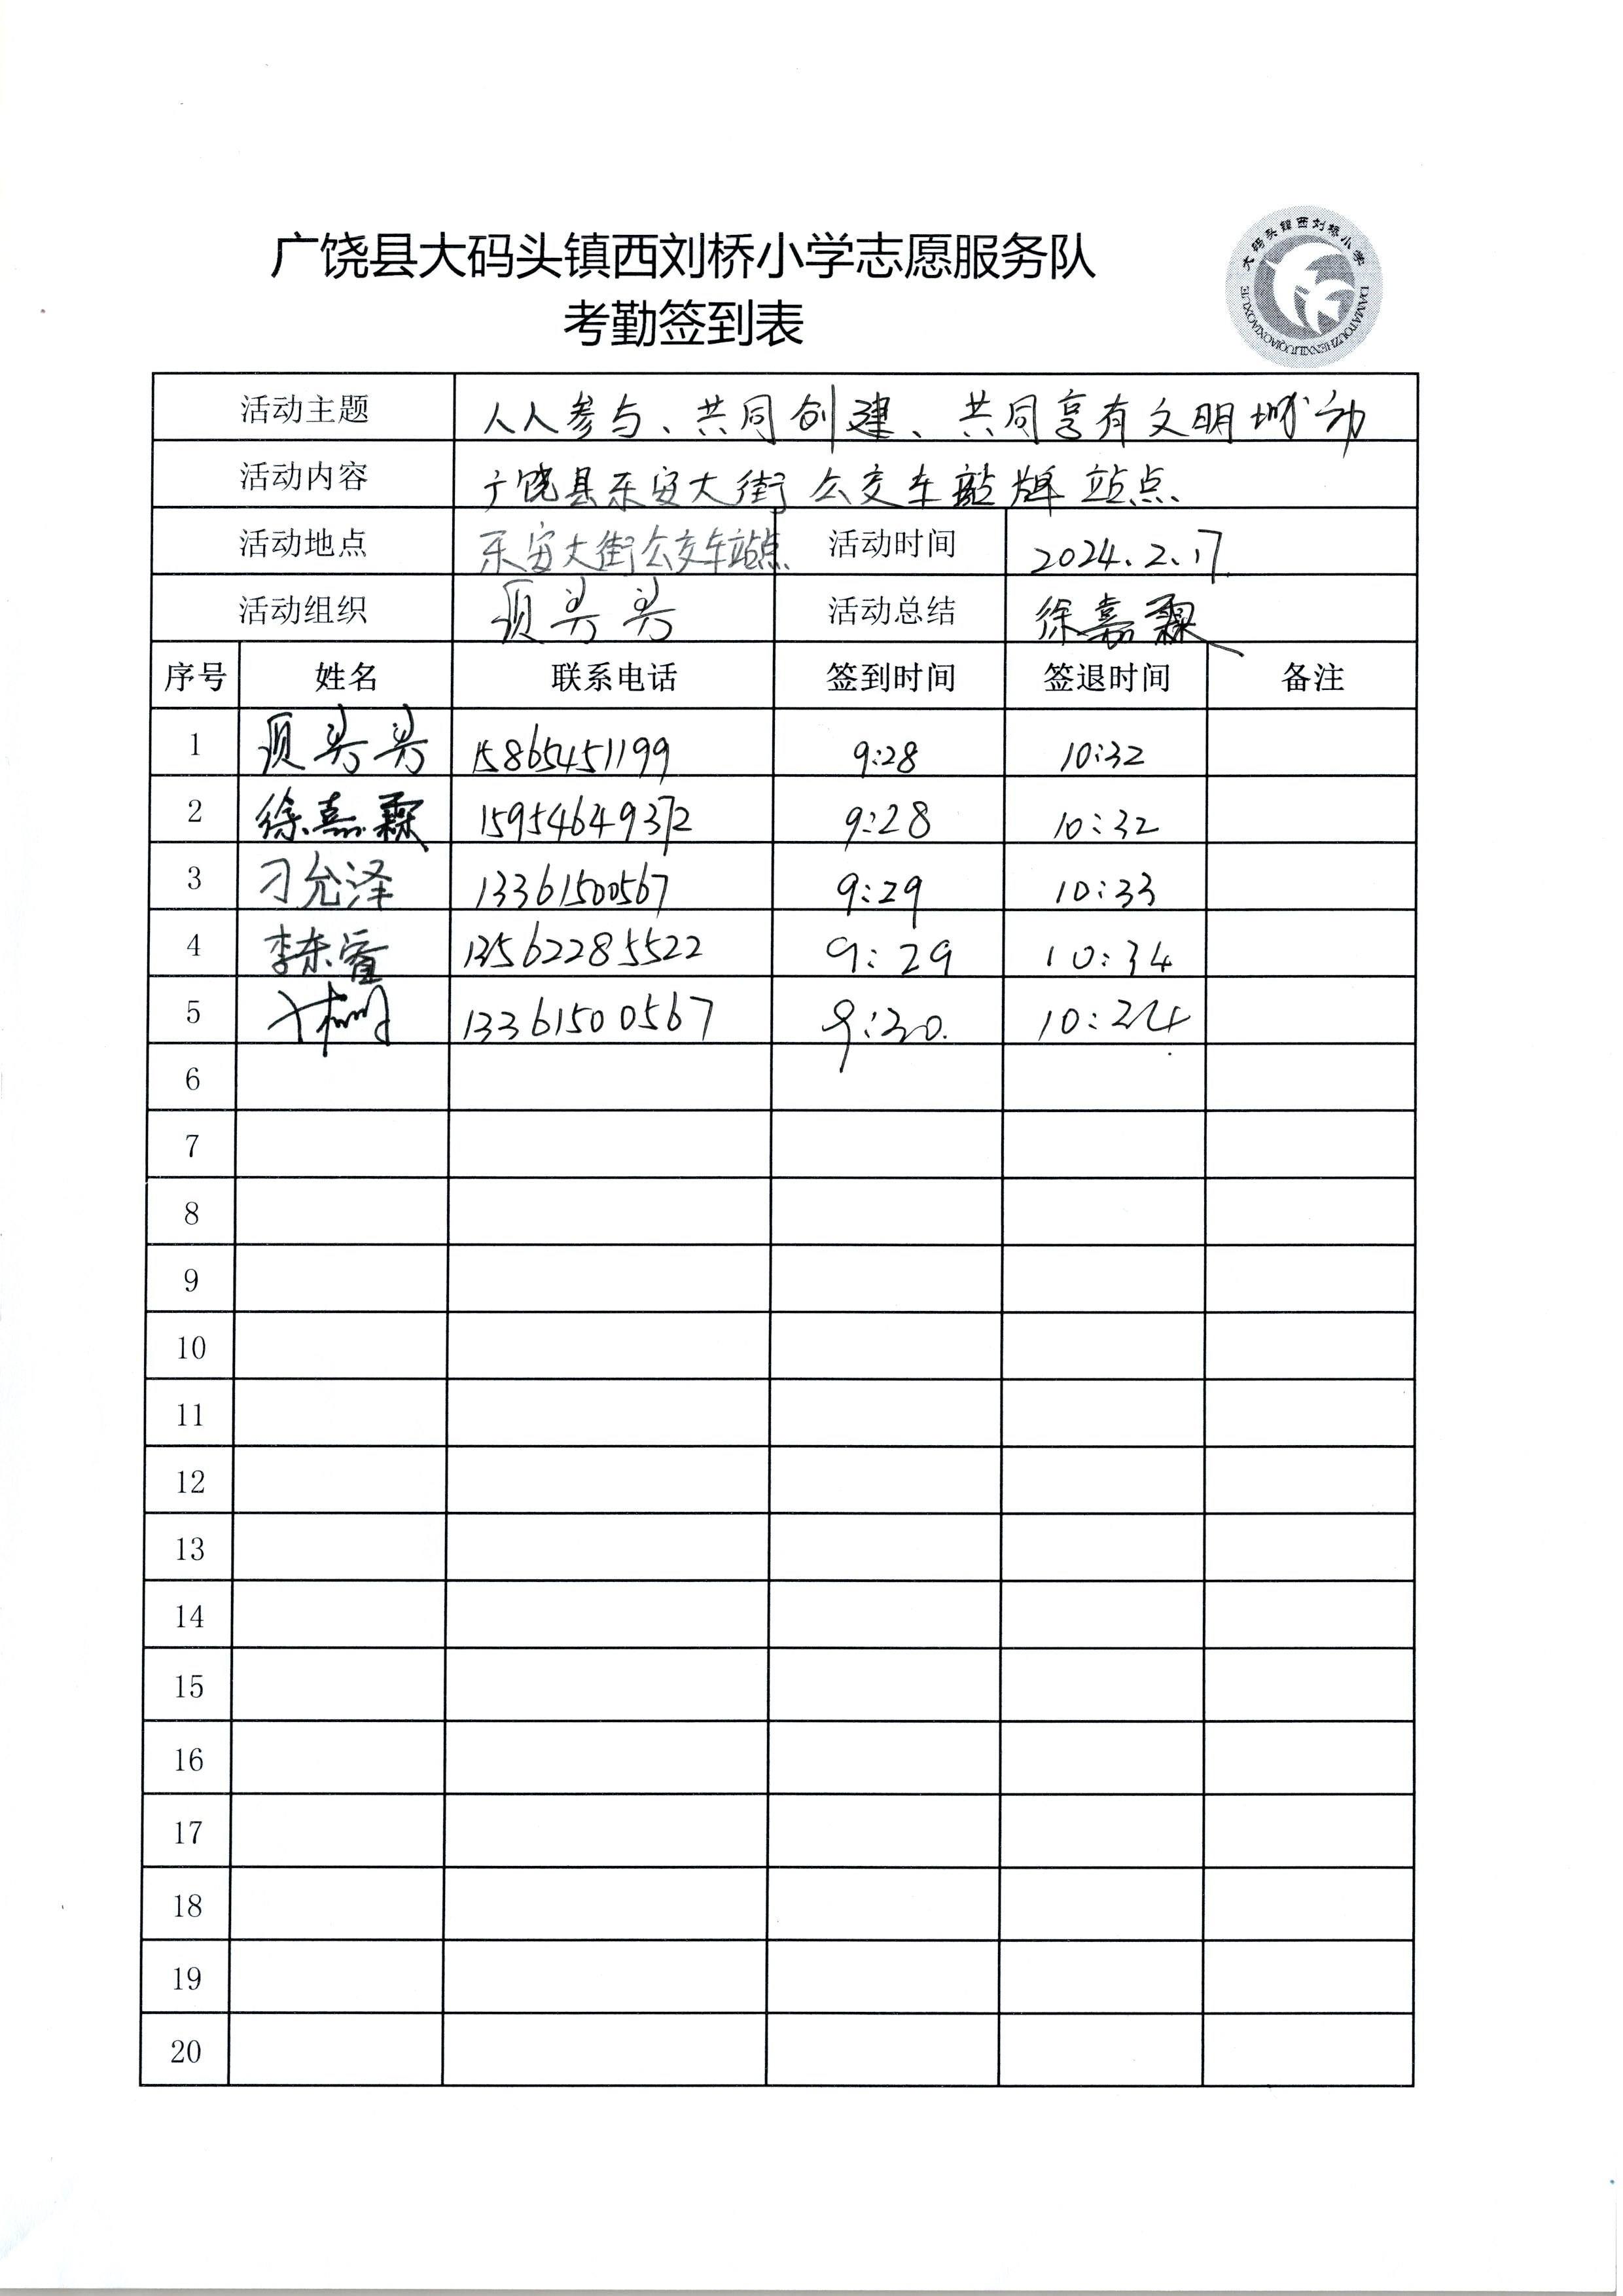 广饶县大码头镇西刘桥小学志愿服务队
考勤签到表
大码头镇西刘桥小学
DAMATOUZHENXILIUQIAOXIAOXUE
活动主题 人人参与、共同创建、共同享有文明城 动
活动内容 广饶县乐安大街公交车 牌站点
活动地点 乐安大街公交车站点 活动时间 2024.2.17
活动组织 活动总结 徐嘉霖
序号 姓名 联系电话 签到时间 签退时间 备注
1 15865451199 9:28 10:32
2 徐嘉霖 15954649372 9:28 10:32
3 刁允泽 13361500567 9:29 10:33
4 李东睿 9:29 10:34
5 13361500567 9:30. 10:24
6
7
8
9
10
11
12
13
14
15
16
17
18
19
20